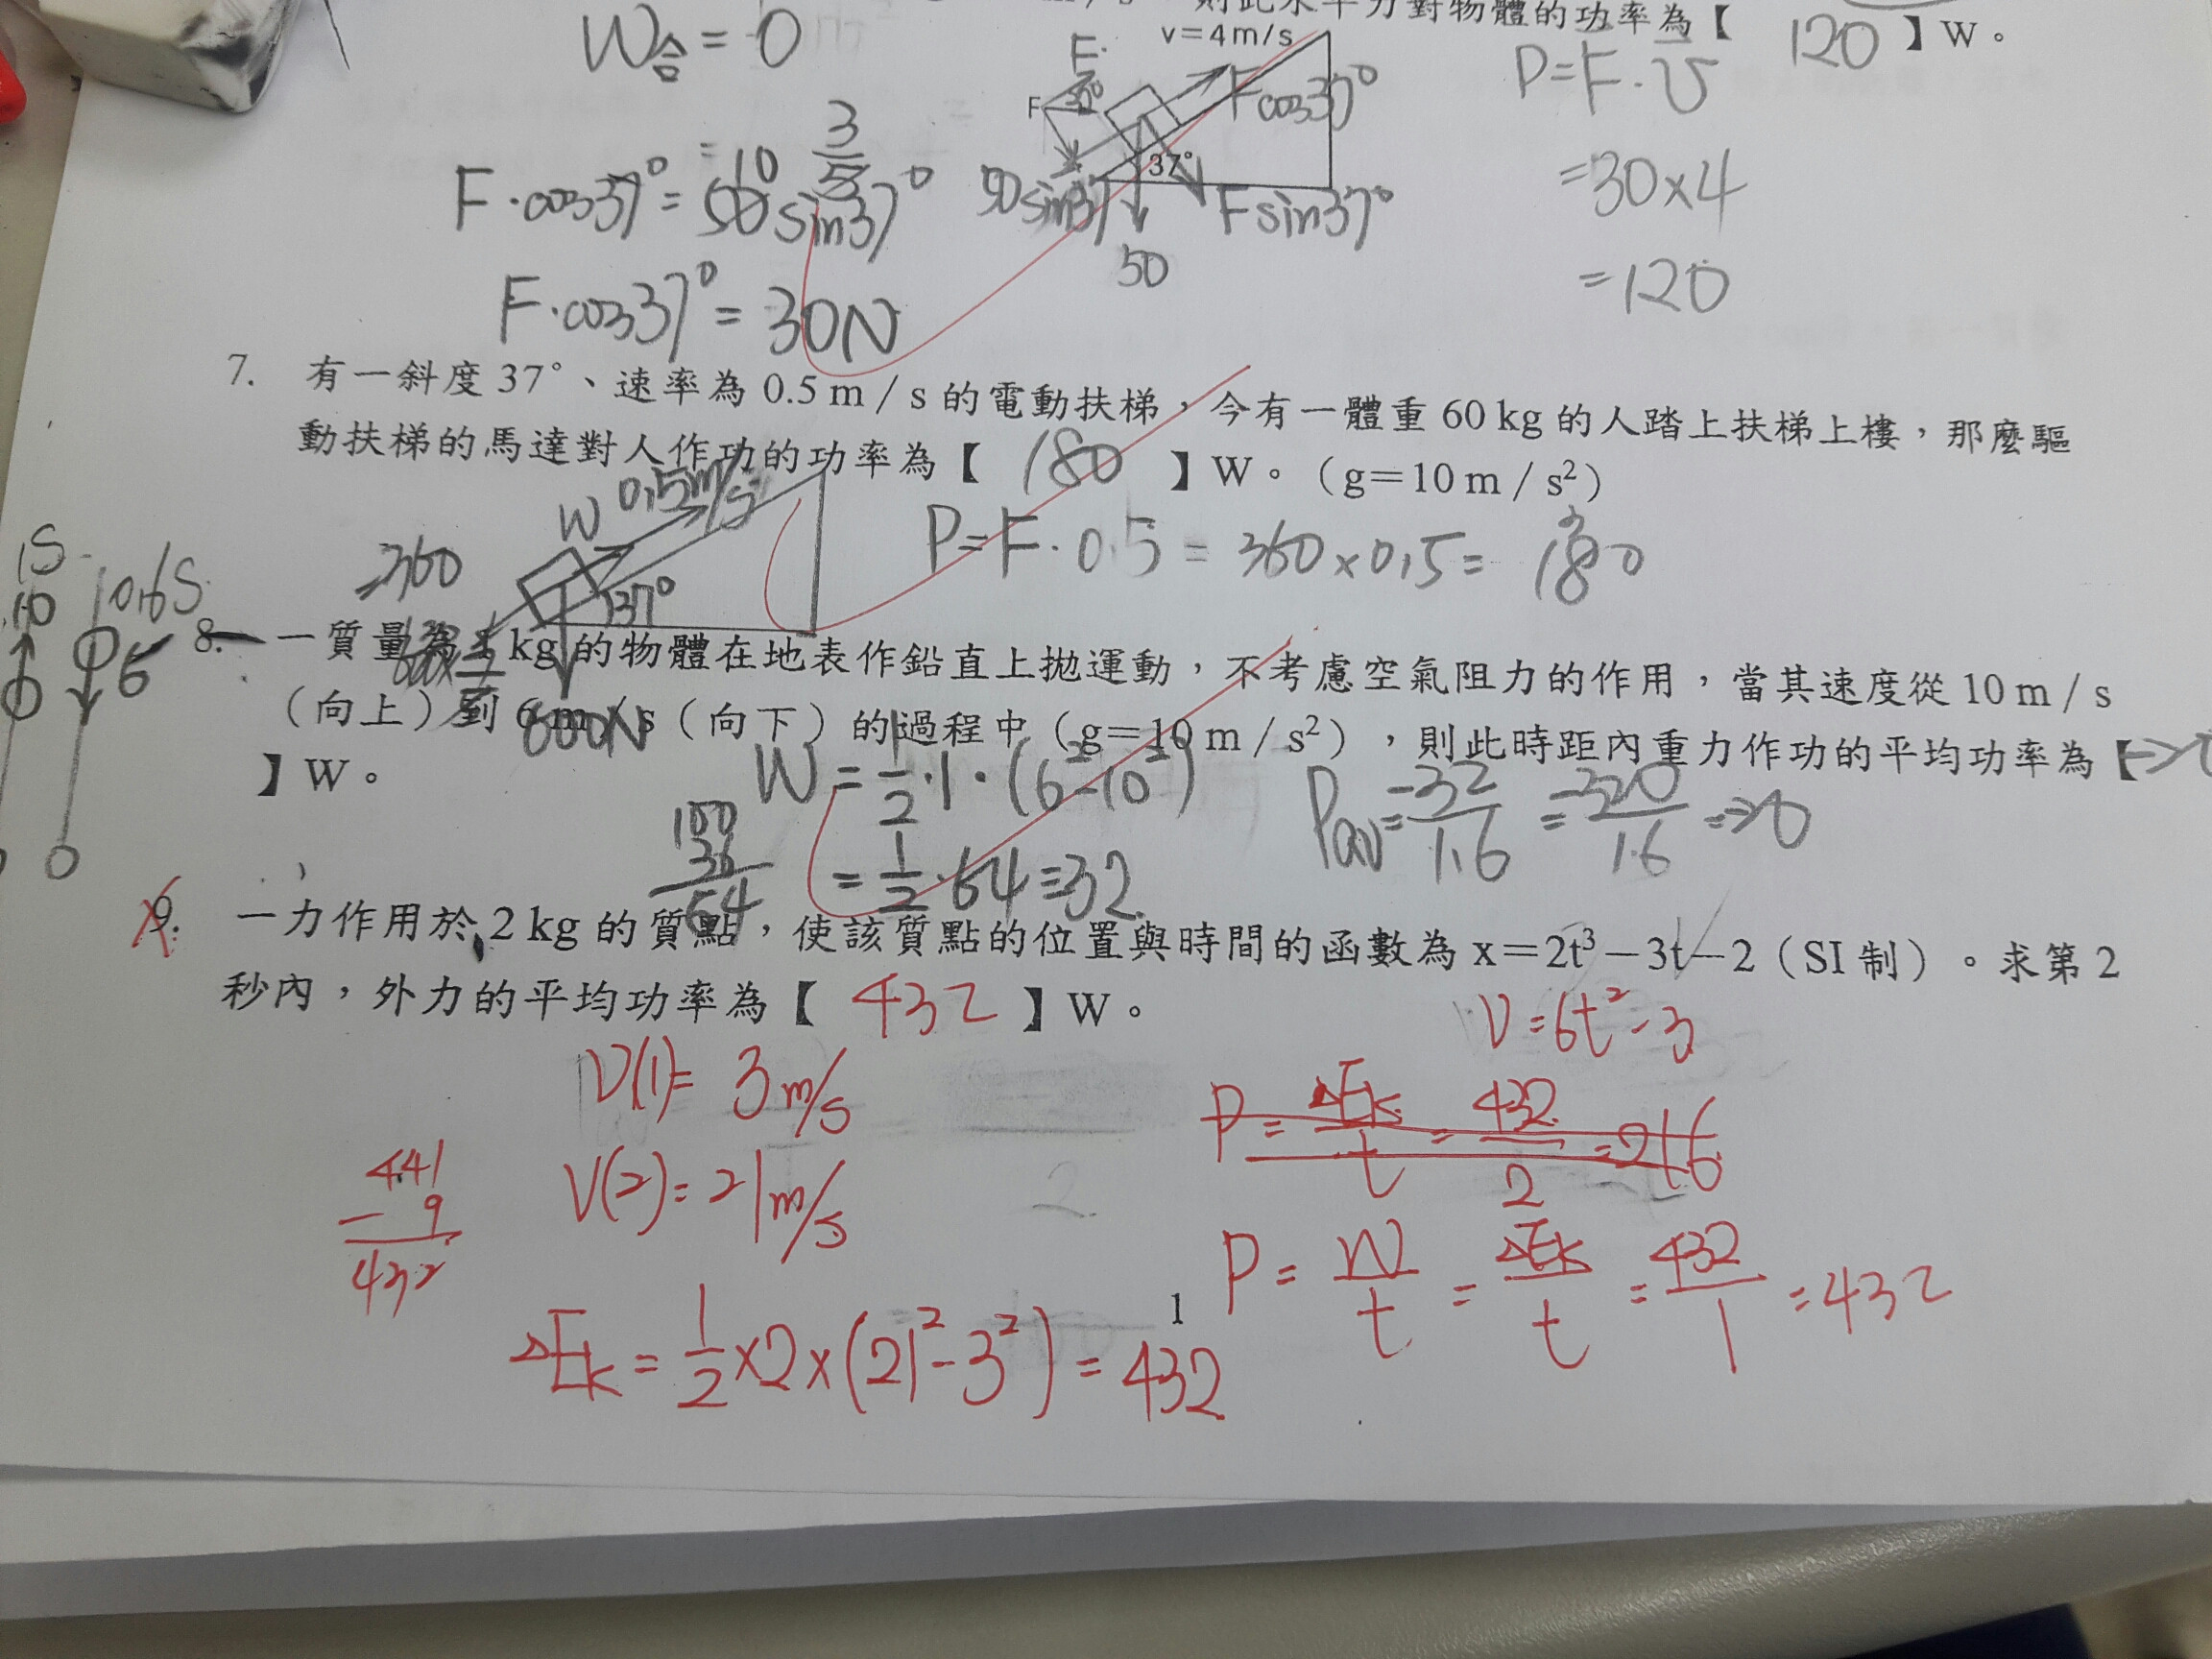 則此水平力對物體的功率為【 120 】W。
W合 = 0
v=4m/s
P=F·v
F
F
37°
Fcos37°
F·cos37° = 50 sin37°
= 10 3/5
50sin37
37°
Fsin37°
50
=30×4
=120
F·cos37° = 30N
7. 有一斜度 37°、速率為 0.5 m/s 的電動扶梯,今有一體重 60 kg 的人踏上扶梯上樓,那麼驅
動扶梯的馬達對人作功的功率為【 180 】W。(g=10 m/s²)
W 0.5m/s
P=F·0.5 = 360×0.5= 180
=360
37°
600N
1S
10
0.6S
6
0
8. 一質量為 1 kg 的物體在地表作鉛直上拋運動,不考慮空氣阻力的作用,當其速度從 10 m/s
(向上)到 6 m/s(向下)的過程中(g=10 m/s²),則此時距內重力作功的平均功率為【
】W。
W = 1/2·1·(6²-10²)
= 1/2·64=32
100
36
64
Pav= -32/1.6 = -320/16 =-20
9. 一力作用於 2 kg 的質點,使該質點的位置與時間的函數為 x=2t³-3t-2(SI 制)。求第 2
秒內,外力的平均功率為【 432 】W。
V=6t²-3
V(1)= 3m/s
P= ΔEk/t = 432/2 =216
V(2)=21m/s
441
- 9
432
P= W/t = ΔEk/t = 432/1 =432
ΔEk = 1/2×2×(21²-3²) = 432
1